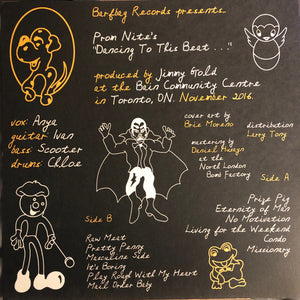 Barfbag Records presents
Prom Nite's
"Dancing To This Beat..."
produced by Jimmy Gold
at the Bain Community Centre
in Toronto, ON. November 2016.
vox: Anya
guitar: Ivan
bass: Scooter
drums: Chloe
cover art by
Brie Moreno
distribution
Larry Tony
mastering by
Daniel Husayn
at the
North London
Bomb Factory
Side A
Prize Pig
Eternity of Men
No Motivation
Living for the Weekend
Condo
Missionary
Side B
Raw Meat
Pretty Penny
Masculine Side
It's Boring
Play Rough With My Heart
Mail Order Baby